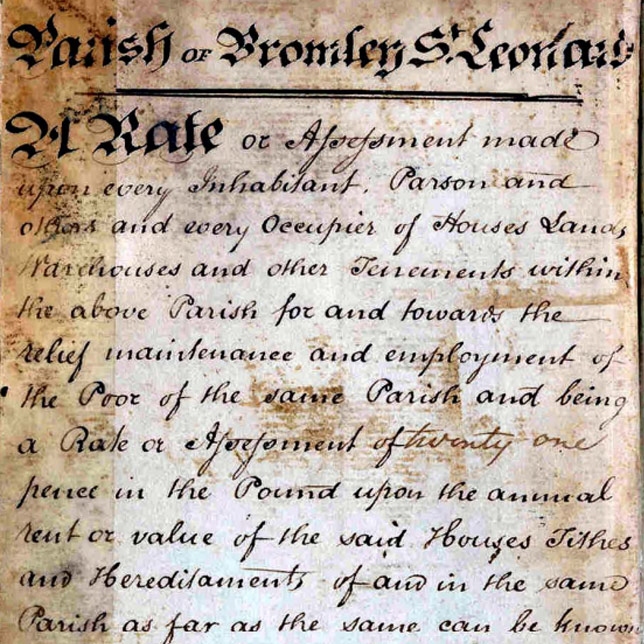 Parish of Bromley St. Leonard
A Rate or Assessment made
upon every Inhabitant. Parson and
others and every Occupier of Houses Lands
Warehouses and other Tenements within
the above Parish for and towards the
relief maintenance and employment of
the Poor of the same Parish and being
a Rate or Assessment of twenty one
pence in the Pound upon the annual
rent or value of the said Houses Tithes
and Hereditaments of and in the same
Parish as far as the same can be known